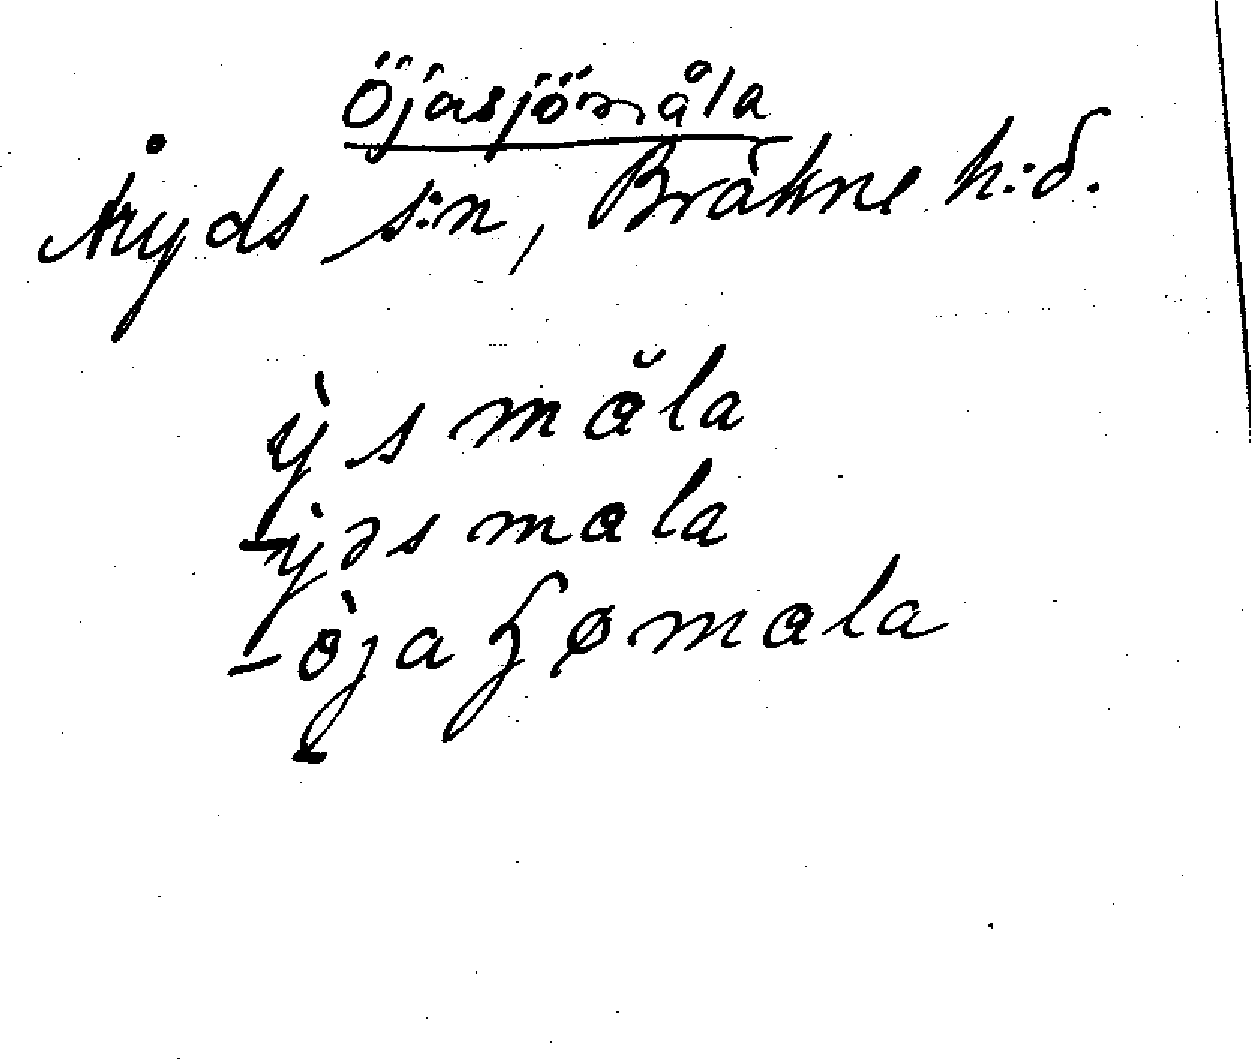 Öjasjömåla
Åryds s:n, Bräkne h:d.
ỳsmåla
ỳəsmåla
òjaʃømåla